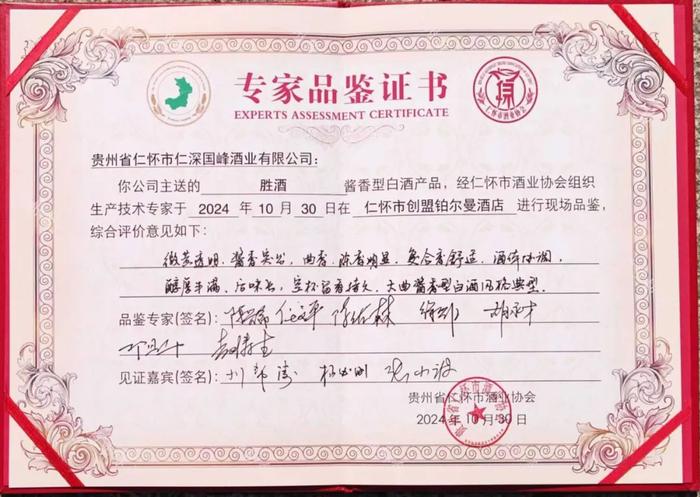 专家品鉴证书
EXPERTS ASSESSMENT CERTIFICATE
仁怀市酒业协会
贵州省仁怀市仁深国峰酒业有限公司：
你公司主送的 胜酒 酱香型白酒产品，经仁怀市酒业协会组织
生产技术专家于 2024 年 10 月 30 日在 仁怀市创盟铂尔曼酒店 进行现场品鉴，
综合评价意见如下：
微黄透明、酱香突出、曲香、陈香明显、复合香舒适、酒体协调、
醇厚丰满、后味长、空杯留香持久、大曲酱香型白酒风格典型。
品鉴专家(签名)：
见证嘉宾(签名)：
贵州省仁怀市酒业协会
2024 年 10 月 30 日